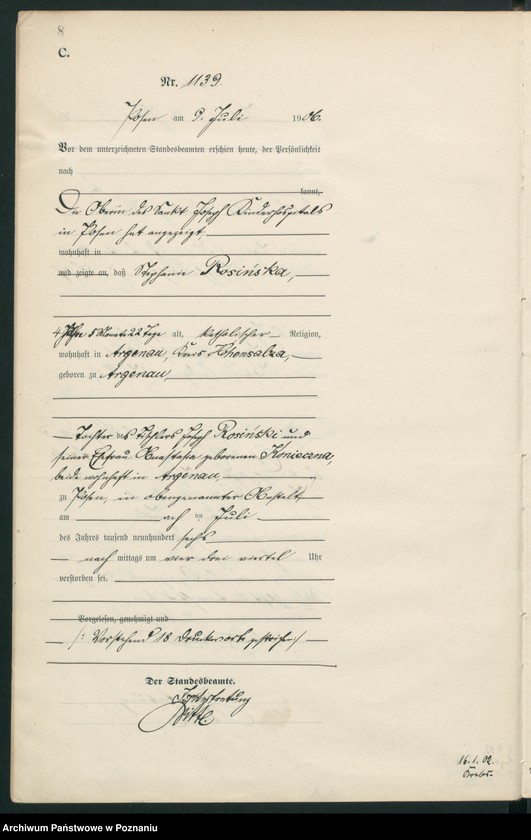 8
C.
Nr. 1139.
Posen am 9. Juli 1906.
Vor dem unterzeichneten Standesbeamten erschien heute, der Persönlichkeit
nach
kannt,
Die Oberin des Sankt Joseph Kinderhospitals
in Posen hat angezeigt,
wohnhaft in
und zeigte an, daß Stephanie Rosińska,
4 Jahre 5 Monate 22 Tage alt, katholischer Religion,
wohnhaft in Argenau, Kreis Hohensalza,
geboren zu Argenau,
Tochter des Tischlers Joseph Rosiński und
seiner Ehefrau Anastasia geborenen Konieczna,
beide wohnhaft in Argenau,
zu Posen, in obengenannter Anstalt,
am acht ten Juli
des Jahres tausend neunhundert sechs
nach mittags um vier drei viertel Uhr
verstorben sei.
Vorgelesen, genehmigt und
/: Vorstehend 18 Druckworte gestrichen :/
Der Standesbeamte.
In Vertretung
16.1.
Archiwum Państwowe w Poznaniu